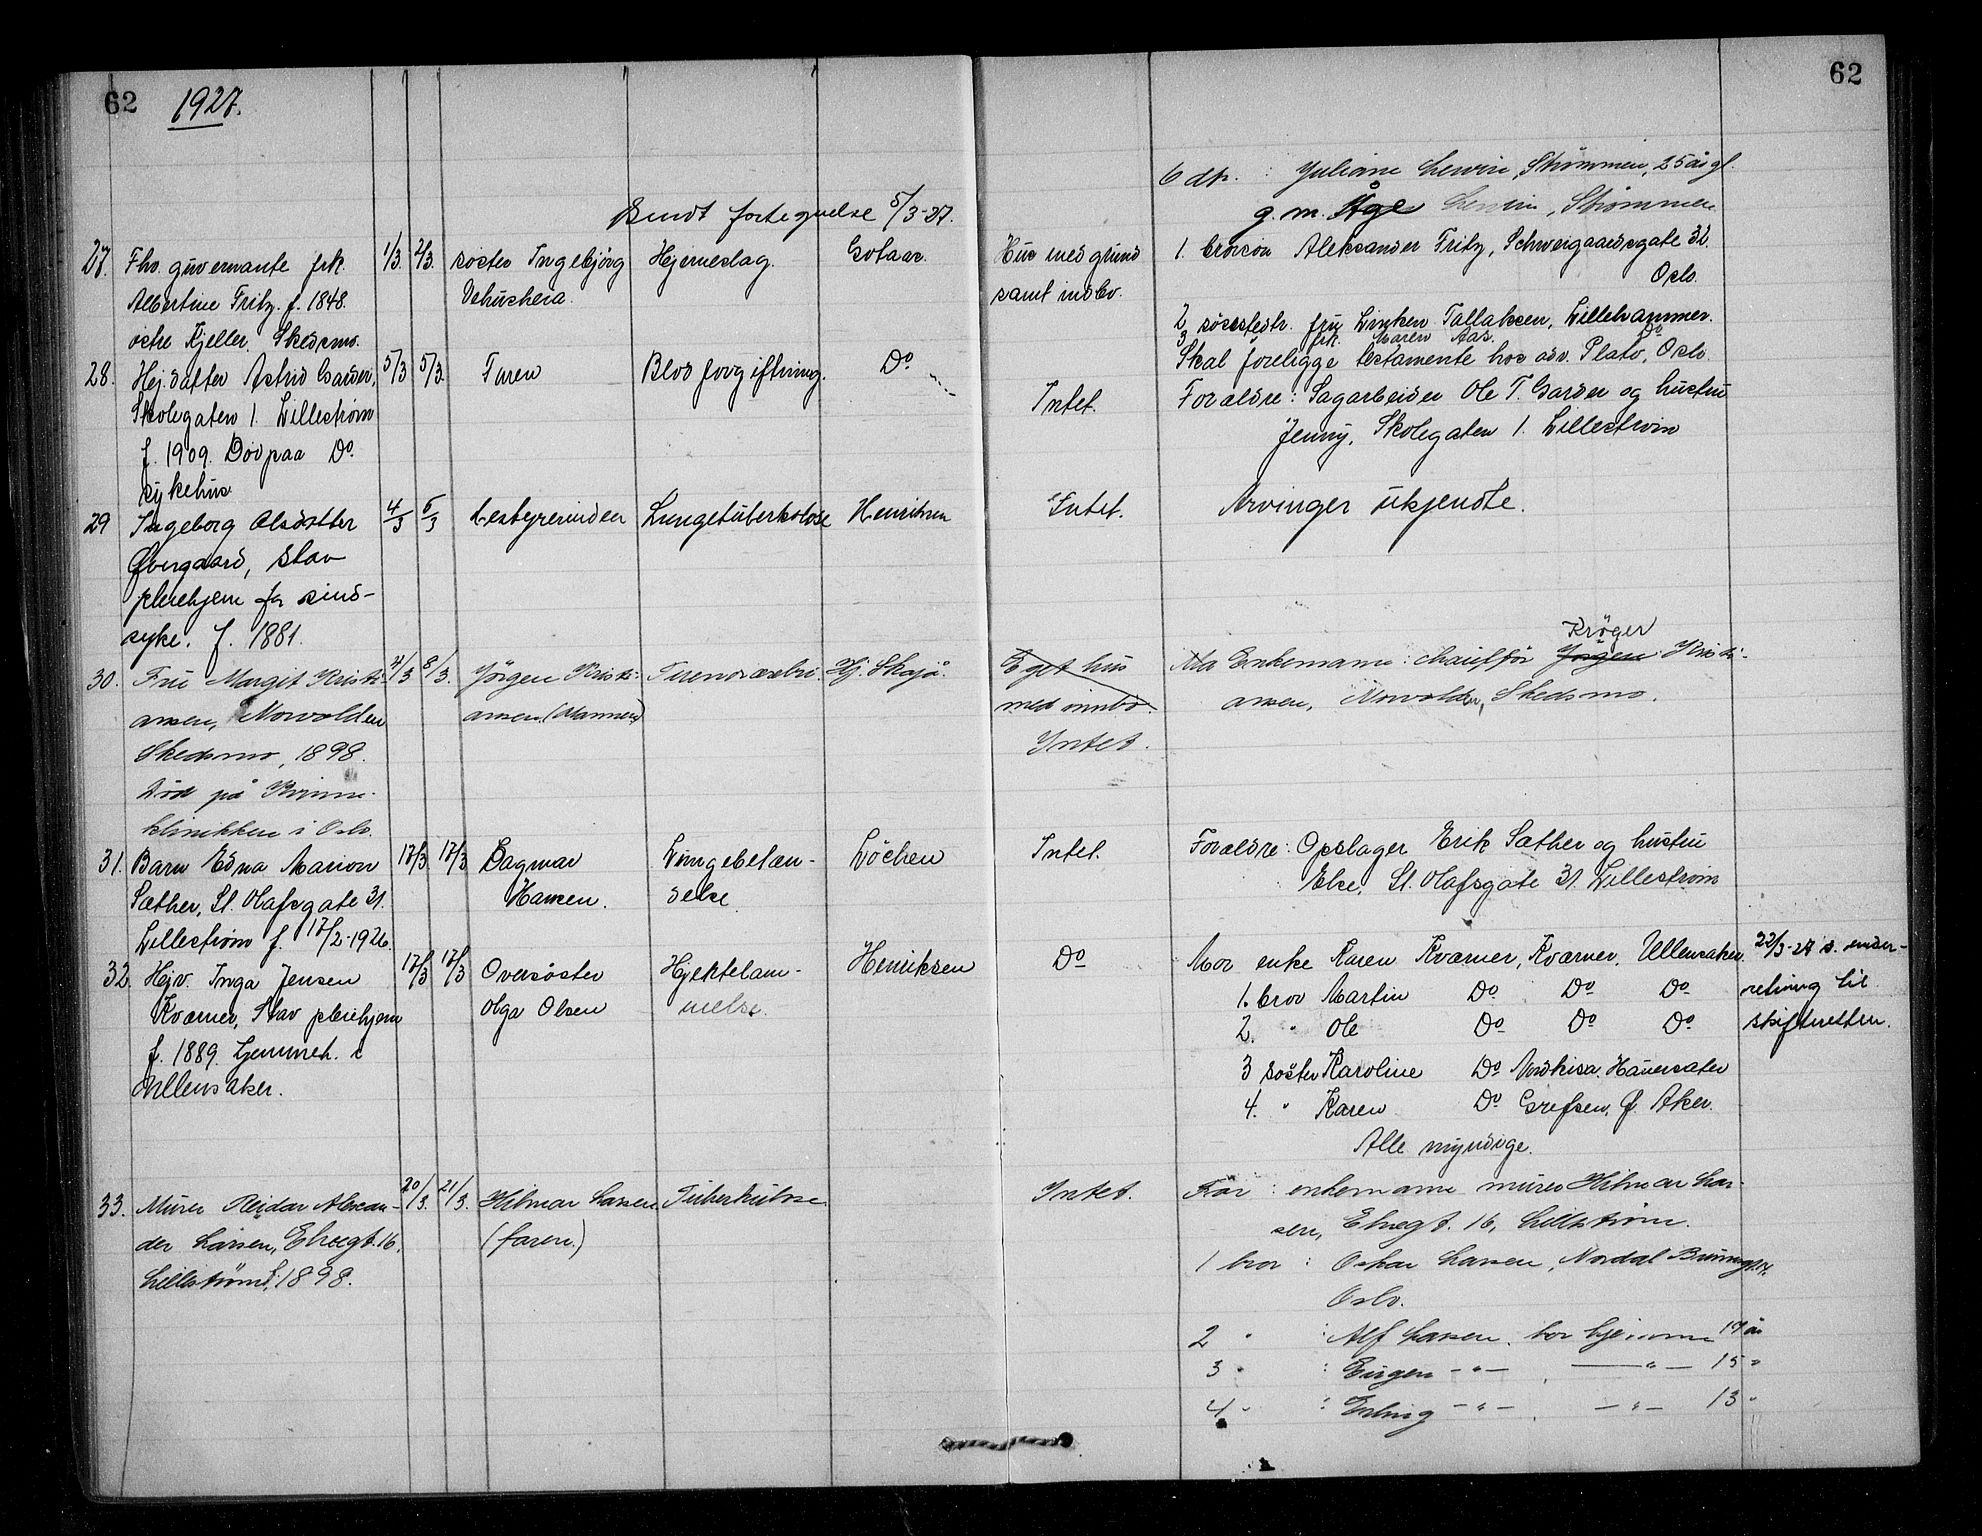 62
1927.
62
6 dtr. : Juliane Lewin, Strømmen, 25 år gl.
g. m. Åge Lewin, Strømmen
Sendt fortegnelse 5/3-27.
27. Fhv. guvernante frk. 1/3. 2/3. søster Ingebjørg Hjerneslag. Gotaas.
Albertine Fritz. f. 1848.
østre Kjeller. Skedsmo.
Hus med grund
samt indbo.
1. brorsøn Aleksander Fritz, Schweigaardsgate 32.
Oslo.
2. søsterdtr. fru Linken Tallaksen, Lillehammer.
3 frk. Maren Aas. Do
Skal foreligge testamente hos adv. Plato, Oslo.
28. Hej.datter Astrid Garder, 5/3 5/3. Faren Blodforgiftning. Do
Skolegaten 1. Lillestrøm
f. 1909. Død paa Do.
sykehus
Intet.
Forældre: Sagarbeider Ole T. Garder og hustru
Jenny, Skolegaten 1. Lillestrøm
29 Ingeborg Olsdatter 4/3 5/3 bestyrerinden Lungetuberkolose Henriksen
Øvergaard, Stav
pleiehjem for sinds-
syke. f. 1881.
Intet.
Arvinger ukjendte.
30. Fru Margit Kristi- 4/3 8/3. Jørgen Kristi-
ansen, Norvolden ansen. (Mannen)
Skedsmo, 1898.
Død på Kvinne-
klinikken i Oslo.
Hj. Skajå.
Eget hus
med innbo.
Intet.
Krøger
Enkemann: chauffør Jørgen Kristi-
ansen, Norvolden, Skedsmo.
31. Barn Edna Marion 17/3 17/3 Dagmar Lungebetæn- Løchen
Sæther, St. Olafsgate 31. Hansen. delse
Lillestrøm f. 17/2-1926.
Intet.
Forældre: Opslager Erik Sæther og hustru
Else, St. Olafsgate 31 Lillestrøm
32. Hejv. Inga Jensen 17/3 17/3 Oversøster Hjertelam- Henriksen
Kværner, Stav pleiehjem Olga Olsen melse.
f. 1889. Hjemmeh. i
Ullensaker.
Do
Mor enke Karen Kværner, Kværner, Ullensaker. 22/3-27 s. under-
1. bror Martin Do Do Do retning til
2. " Ole Do Do Do skifteretten.
3 søster Karoline Do Nordkisa. Hauersæter
4. " Karen Do Grefsen, V. Aker.
Alle myndige.
33. Murer Reidar Alexan- 20/3. 21/3. Hilmar Larsen Tuberkulose
der Larsen, Elvegt. 16, (faren.)
Lillestrøm f. 1898.
Intet.
Far : enkemann murer Hilmar Lar-
sen, Elvegt. 16, Lillestrøm.
1 bror : Oskar Larsen, Nordal Brunsgt.
Oslo.
2 " : Alf Larsen, bor hjemme 19 år
3 " : Eugen -"- , -"- 15 "
4 " : Erling -"- , -"- 13 "